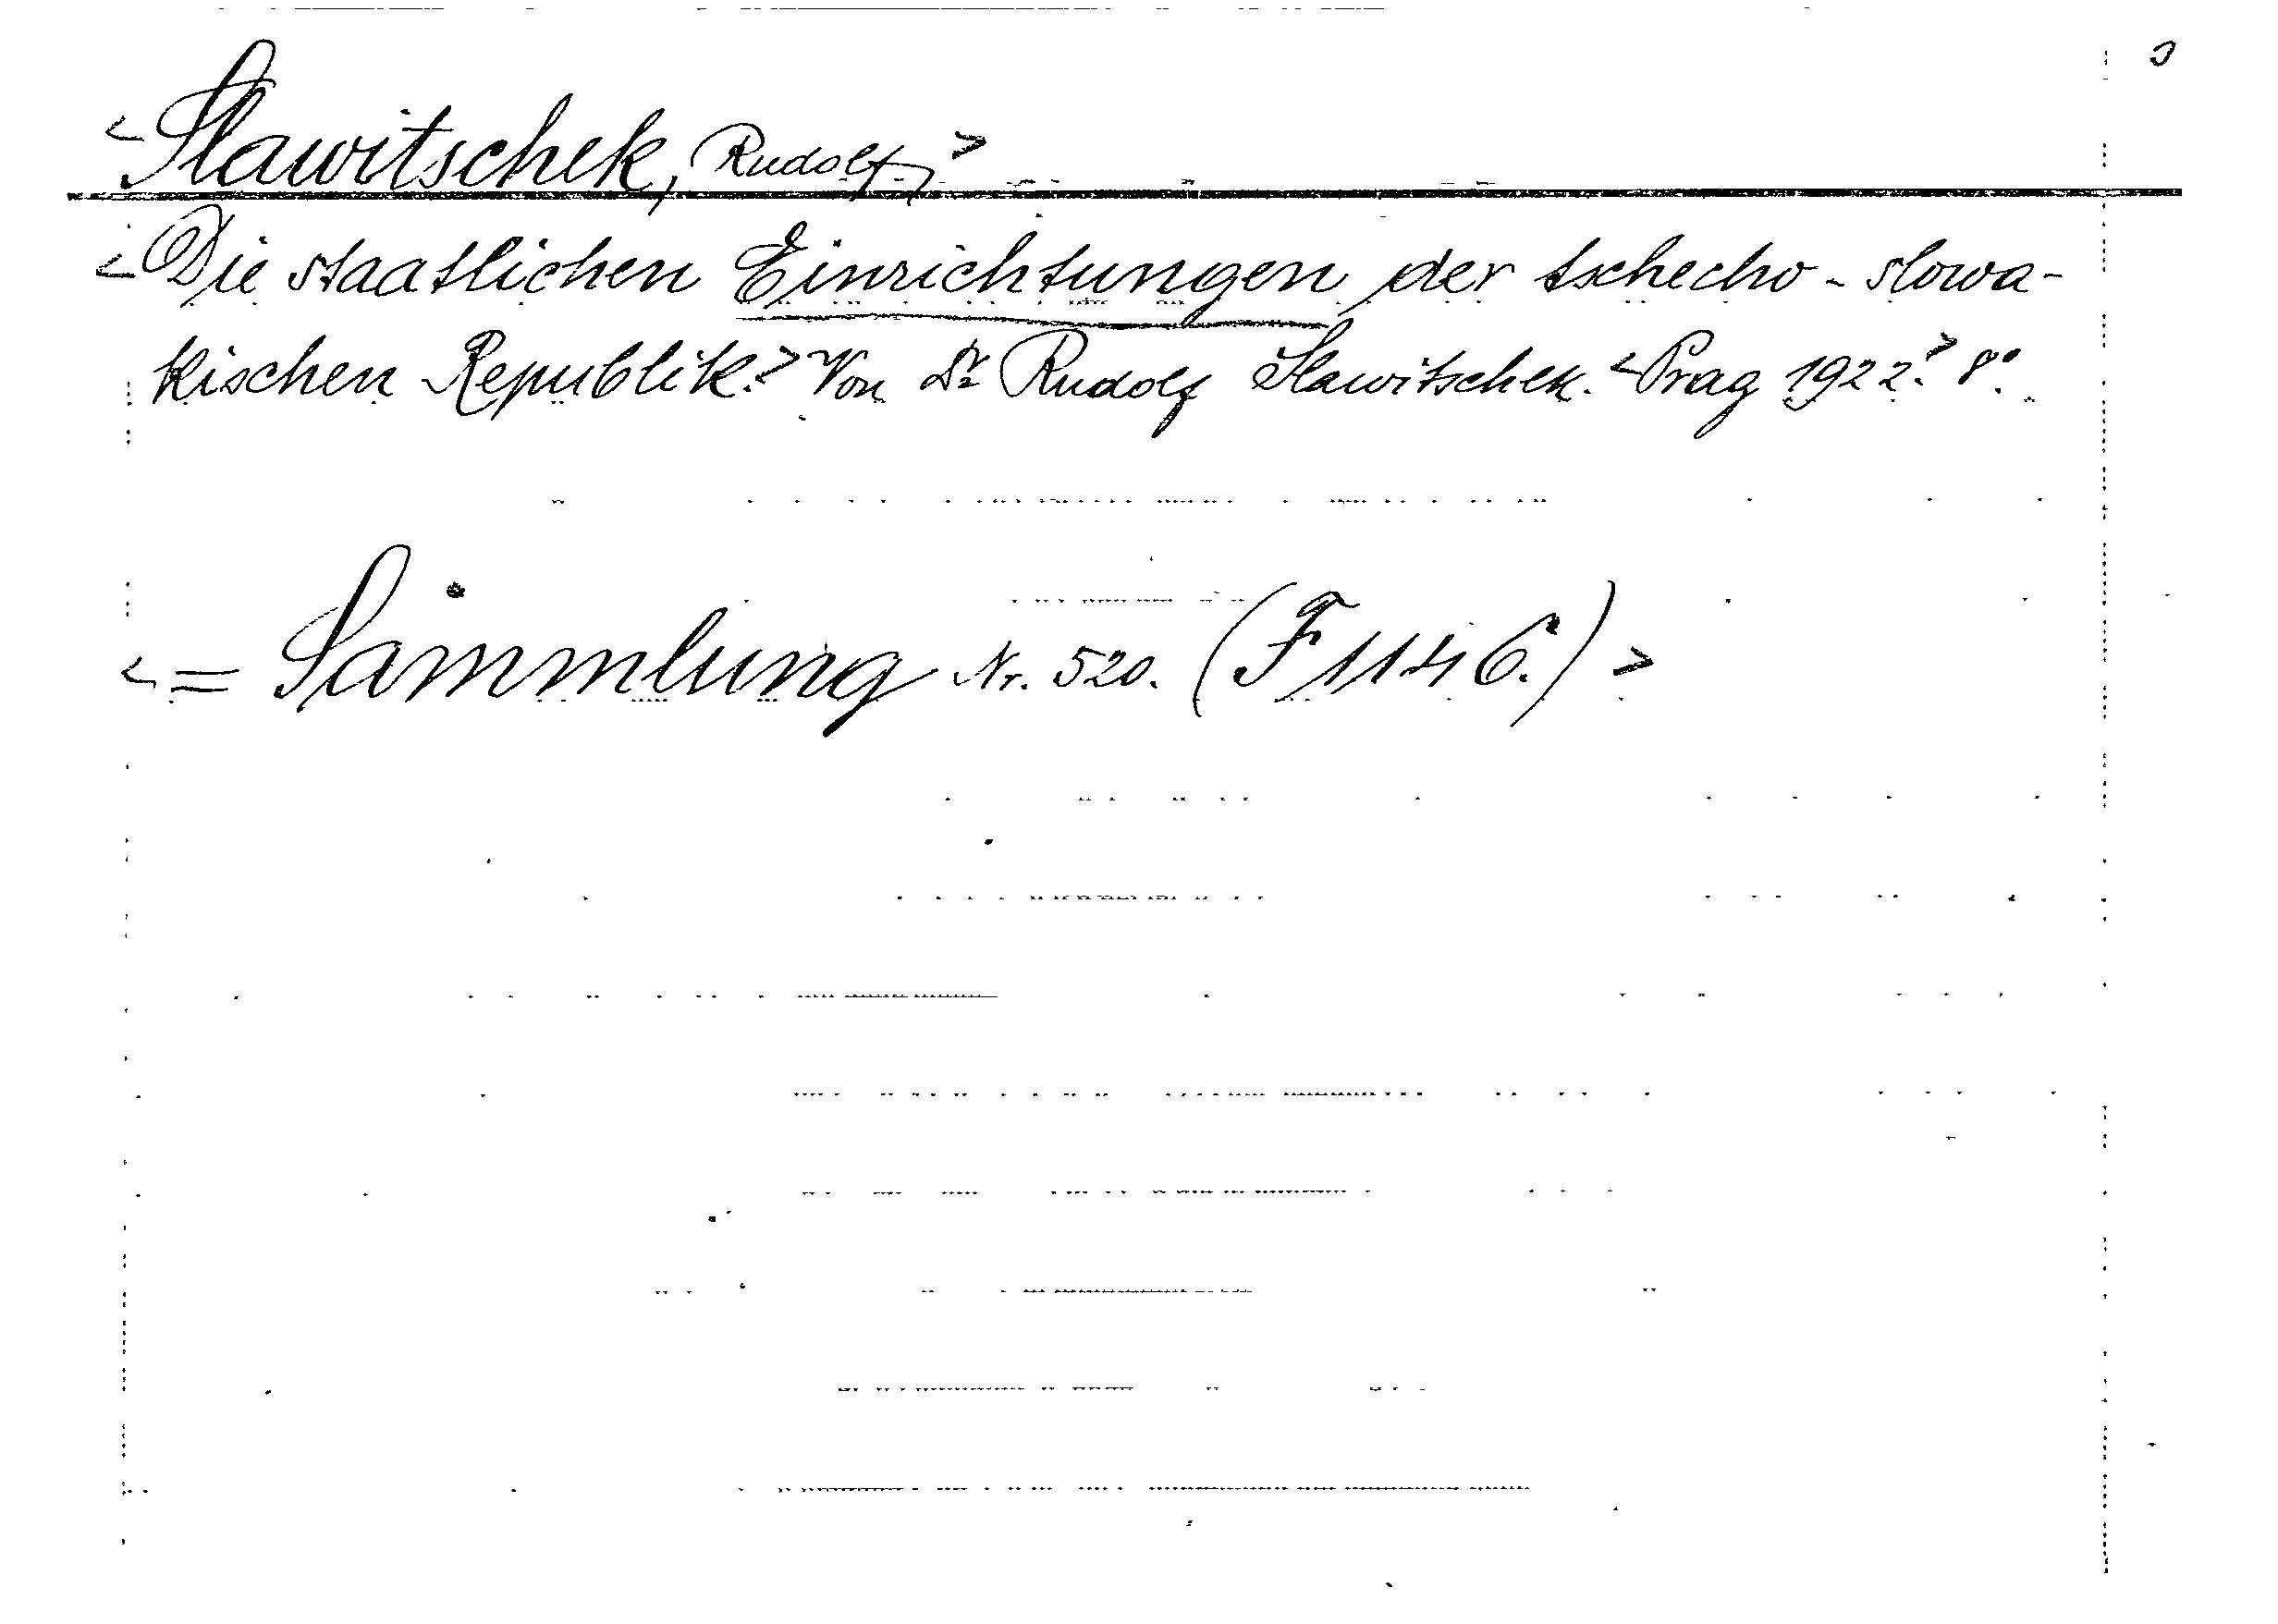 <Slawitschek, Rudolf,>
<Die staatlichen Einrichtungen der tschecho-slowa-
kischen Republik.> Von Dr Rudolf Slawitschek. <Prag 1922.> 8°.
<= Sammlung Nr. 520. (F 1146.)>